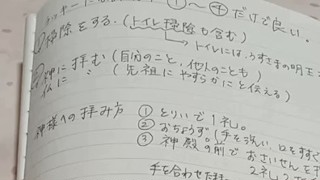 ①〜④だけで良い.
掃除をする.(トイレ掃除も含む)
→トイレには、うすさまの明王
神に拝む(自分のこと、他人のことも)
仏に 〃 (先祖にやすらかにと伝える)
神様への拝み方 ① とりいで1礼。
② おちょうず。(手を洗い、口をすす
③ 神殿の前でおさいせんを
2礼2
手を合わせた